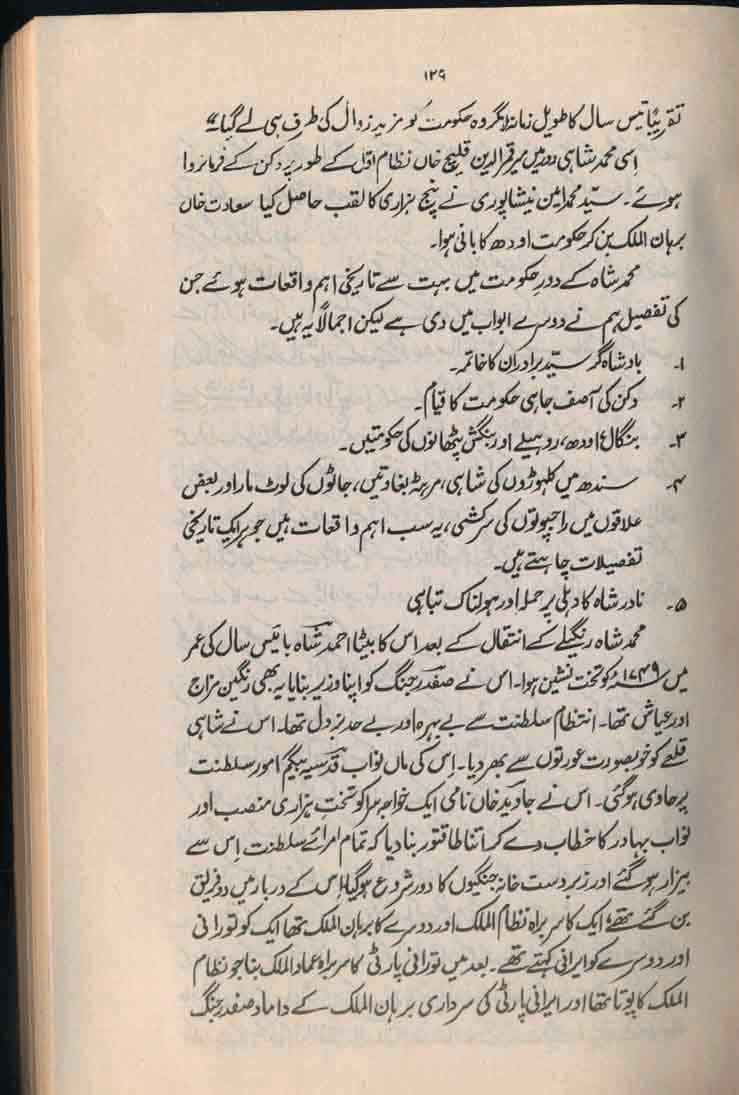 ۱۲۹
تقریباً تیس سال کا طویل زمانہ لا مگر وہ حکومت کو مزید زوال کی طرف ہی لے گیا"
اسی محمد شاہی دور میں میر قمر الدین قلیچ خاں نظام اوّل کے طور پر دکن کے فرمانروا
ہوئے۔ سیّد محمد امین نیشاپوری نے پنچ ہزاری کا لقب حاصل کیا سعادت خاں
برہان الملک بن کر حکومت اودھ کا بانی ہوا۔
محمد شاہ کے دورِ حکومت میں بہت سے تاریخی اہم واقعات ہوئے جن
کی تفصیل ہم نے دوسرے ابواب میں دی ہے لیکن اجمالاً یہ ہیں۔
۱۔ بادشاہ گر سیّد برادران کا خاتمہ۔
۲۔ دکن کی آصف جاہی حکومت کا قیام۔
۳۔ بنگال، اودھ، روہیلے اور بنگش پٹھانوں کی حکومتیں۔
۴۔ سندھ میں کلہوڑوں کی شاہی، مرہٹہ بغاوتیں، جاٹوں کی لوٹ مار اور بعض
علاقوں میں راجپوتوں کی سرکشی، یہ سب اہم واقعات ہیں جو ہر ایک تاریخی
تفصیلات چاہتے ہیں۔
۵۔ نادر شاہ کا دہلی پر حملہ اور ہولناک تباہی
محمد شاہ رنگیلے کے انتقال کے بعد اس کا بیٹا احمد شاہ بائیس سال کی عمر
میں ۱۷۴۹ء کو تخت نشین ہوا۔ اس نے صفدر جنگ کو اپنا وزیر بنایا یہ بھی رنگین مزاج
اور عیاش تھا۔ انتظام سلطنت سے بے بہرہ اور بے حد بزدل تھا۔ اس نے شاہی
قلعے کو خوبصورت عورتوں سے بھر دیا۔ اِس کی ماں نواب قدسیہ بیگم امور سلطنت
پر حاوی ہو گئی۔ اس نے جاوید خاں نامی ایک خواجہ سرا کو تخت ہزاری منصب اور
نواب بہادر کا خطاب دے کر اتنا طاقتور بنا دیا کہ تمام امرائے سلطنت اِس سے
بیزار ہو گئے اور زبردست خانہ جنگیوں کا دور شروع ہو گیا، اِس کے دربار میں دو فریق
بن گئے تھے، ایک کا سربراہ نظام الملک اور دوسرے کا برہان الملک تھا ایک کو تورانی
اور دوسرے کو ایرانی کہتے تھے۔ بعد میں تورانی پارٹی کا سربراہ عماد الملک بنا جو نظام
الملک کا پوتا تھا اور ایرانی پارٹی کی سرداری برہان الملک کے داماد صفدر جنگ